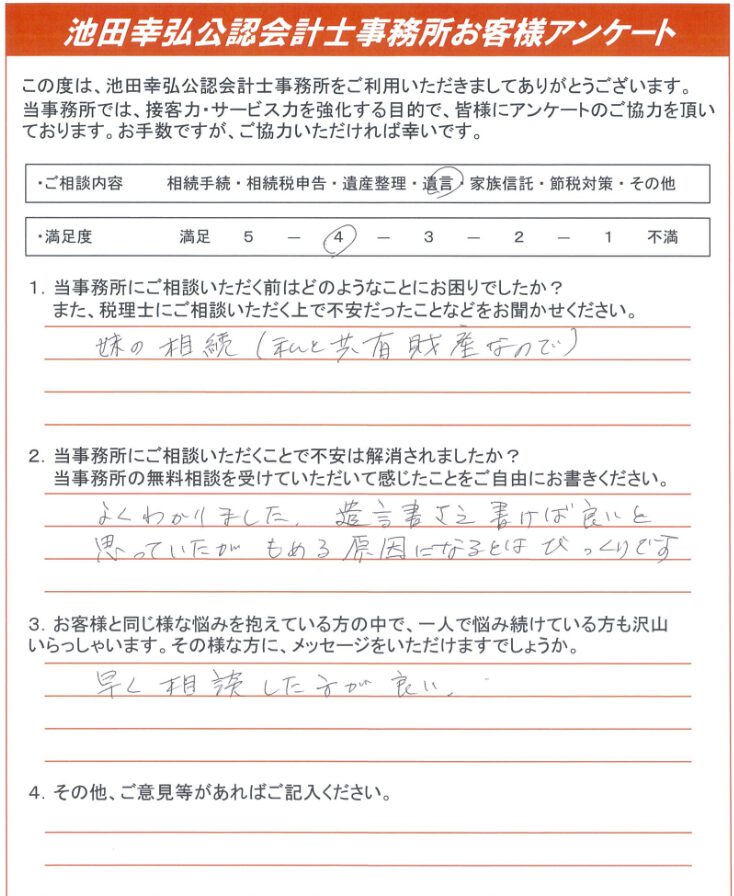 池田幸弘公認会計士事務所お客様アンケート
この度は、池田幸弘公認会計士事務所をご利用いただきましてありがとうございます。
当事務所では、接客力・サービス力を強化する目的で、皆様にアンケートのご協力を頂い
ております。お手数ですが、ご協力いただければ幸いです。
・ご相談内容 相続手続・相続税申告・遺産整理・遺言・家族信託・節税対策・その他
・満足度 満足 5 － 4 － 3 － 2 － 1 不満
1. 当事務所にご相談いただく前はどのようなことにお困りでしたか？
また、税理士にご相談いただく上で不安だったことなどをお聞かせください。
妹の相続（私と共有財産なので）
2. 当事務所にご相談いただくことで不安は解消されましたか？
当事務所の無料相談を受けていただいて感じたことをご自由にお書きください。
よくわかりました。遺言書さえ書けば良いと
思っていたがもめる原因になるとはびっくりです
3. お客様と同じ様な悩みを抱えている方の中で、一人で悩み続けている方も沢山
いらっしゃいます。その様な方に、メッセージをいただけますでしょうか。
早く相談した方が良い。
4. その他、ご意見等があればご記入ください。